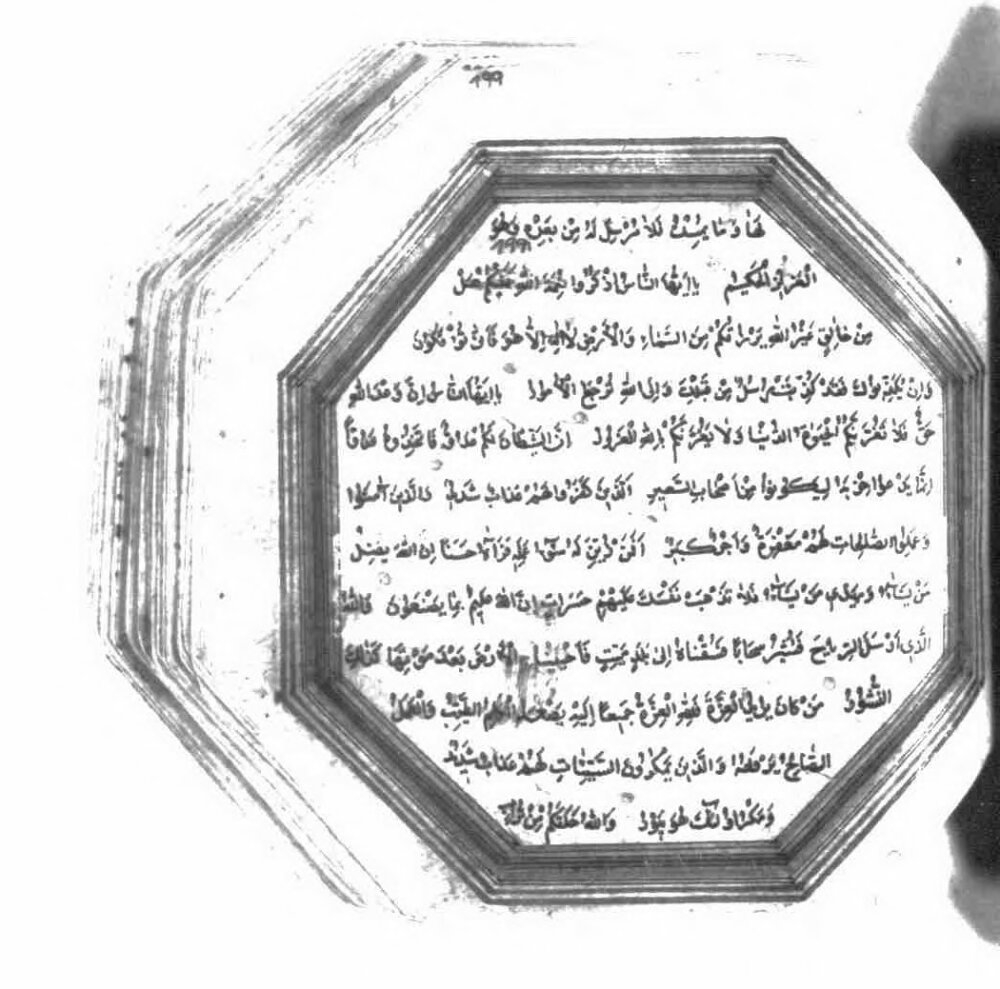 ١٩٩
لها وما يمسك فلا مرسل له من بعده وهو
١٩٩
العزيز الحكيم يا ايها الناس اذكروا نعمة الله عليكم هل
من خالق غير الله يرزقكم من السماء والارض لا اله الا هو فانى تؤفكون
وان يكذبوك فقد كذبت رسل من قبلك والى الله ترجع الامور يا ايها الناس ان وعد الله
حق فلا تغرنكم الحيوة الدنيا ولا يغرنكم بالله الغرور ان الشيطان لكم عدو فاتخذوه عدوا
انما يدعوا حزبه ليكونوا من اصحاب السعير الذين كفروا لهم عذاب شديد والذين امنوا
وعملوا الصالحات لهم مغفرة واجر كبير افمن زين له سوء عمله فراه حسنا فان الله يضل
من يشاء ويهدي من يشاء فلا تذهب نفسك عليهم حسرات ان الله عليم بما يصنعون والله
الذي ارسل الرياح فتثير سحابا فسقناه الى بلد ميت فاحيينا به الارض بعد موتها كذلك
النشور من كان يريد العزة فلله العزة جميعا اليه يصعد الكلم الطيب والعمل
الصالح يرفعه والذين يمكرون السيئات لهم عذاب شديد
ومكر اولئك هو يبور والله خلقكم من تراب